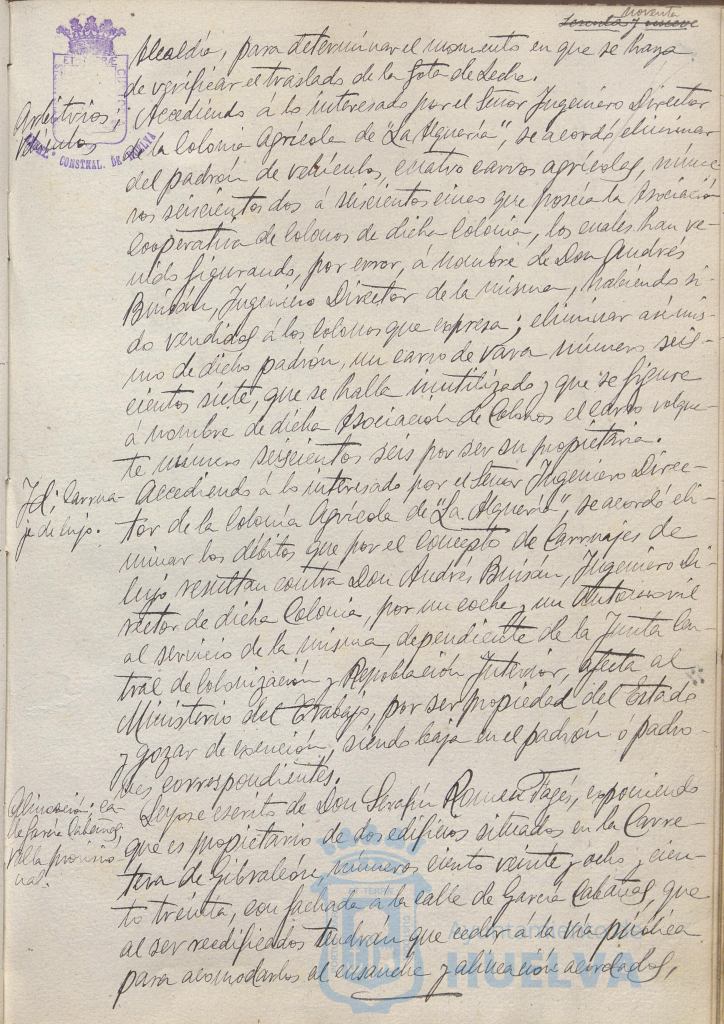 noventa
Sesenta y nueve
Alcaldía, para determinar el momento en que se haya
de verificar el traslado de la Gota de Leche.
Arbitrios,
Vehículos
Accediendo á lo interesado por el Señor Ingeniero Director
de la Colonia Agrícola de "La Alquería", se acordó eliminar
del padrón de vehículos, cuatro carros agrícolas, núme-
ros seiscientos dos á seiscientos cinco que poseía la Asociación
Cooperativa de Colonos de dicha Colonia, los cuales han ve-
nido figurando, por error, á nombre de Don Andrés
Buisán, Ingeniero Director de la misma, habiendo si-
do vendidos á los Colonos que expresa; eliminar asimis-
mo de dicho padrón, un carro de vara número seis-
cientos siete, que se halla inutilizado y que se figure
á nombre de dicha Asociación de Colonos el carro volque-
te número seiscientos seis por ser su propietaria.
Id; Carrua-
je de lujo.
Accediendo á lo interesado por el Señor Ingeniero Direc-
tor de la Colonia Agrícola de "La Alquería", se acordó eli-
minar los débitos que por el concepto de Carruajes de
lujo resultan contra Don Andrés Buisán, Ingeniero Di-
rector de dicha Colonia, por un coche y un Automóvil
al servicio de la misma, dependiente de la Junta Cen-
tral de Colonización y Repoblación Interior, afecta al
Ministerio del Trabajo, por ser propiedad del Estado
y gozar de exención, siendo baja en el padrón ó padro-
nes correspondientes.
Alineación: ca-
lle García Cabañas,
Valla provisio-
nal.
Leyose escrito de Don Serafín Romeu Fagés, exponiendo
que es propietario de dos edificios situados en la Carre-
tera de Gibraleón, números ciento veinte y ocho y cien-
to treinta, con fachada á la calle de García Cabañas, que
al ser reedificados tendrán que ceder á la vía pública
para acomodarlos al ensanche y alineación acordados,
CONSTNAL. DE HUELVA
Ayuntamiento de
HUELVA